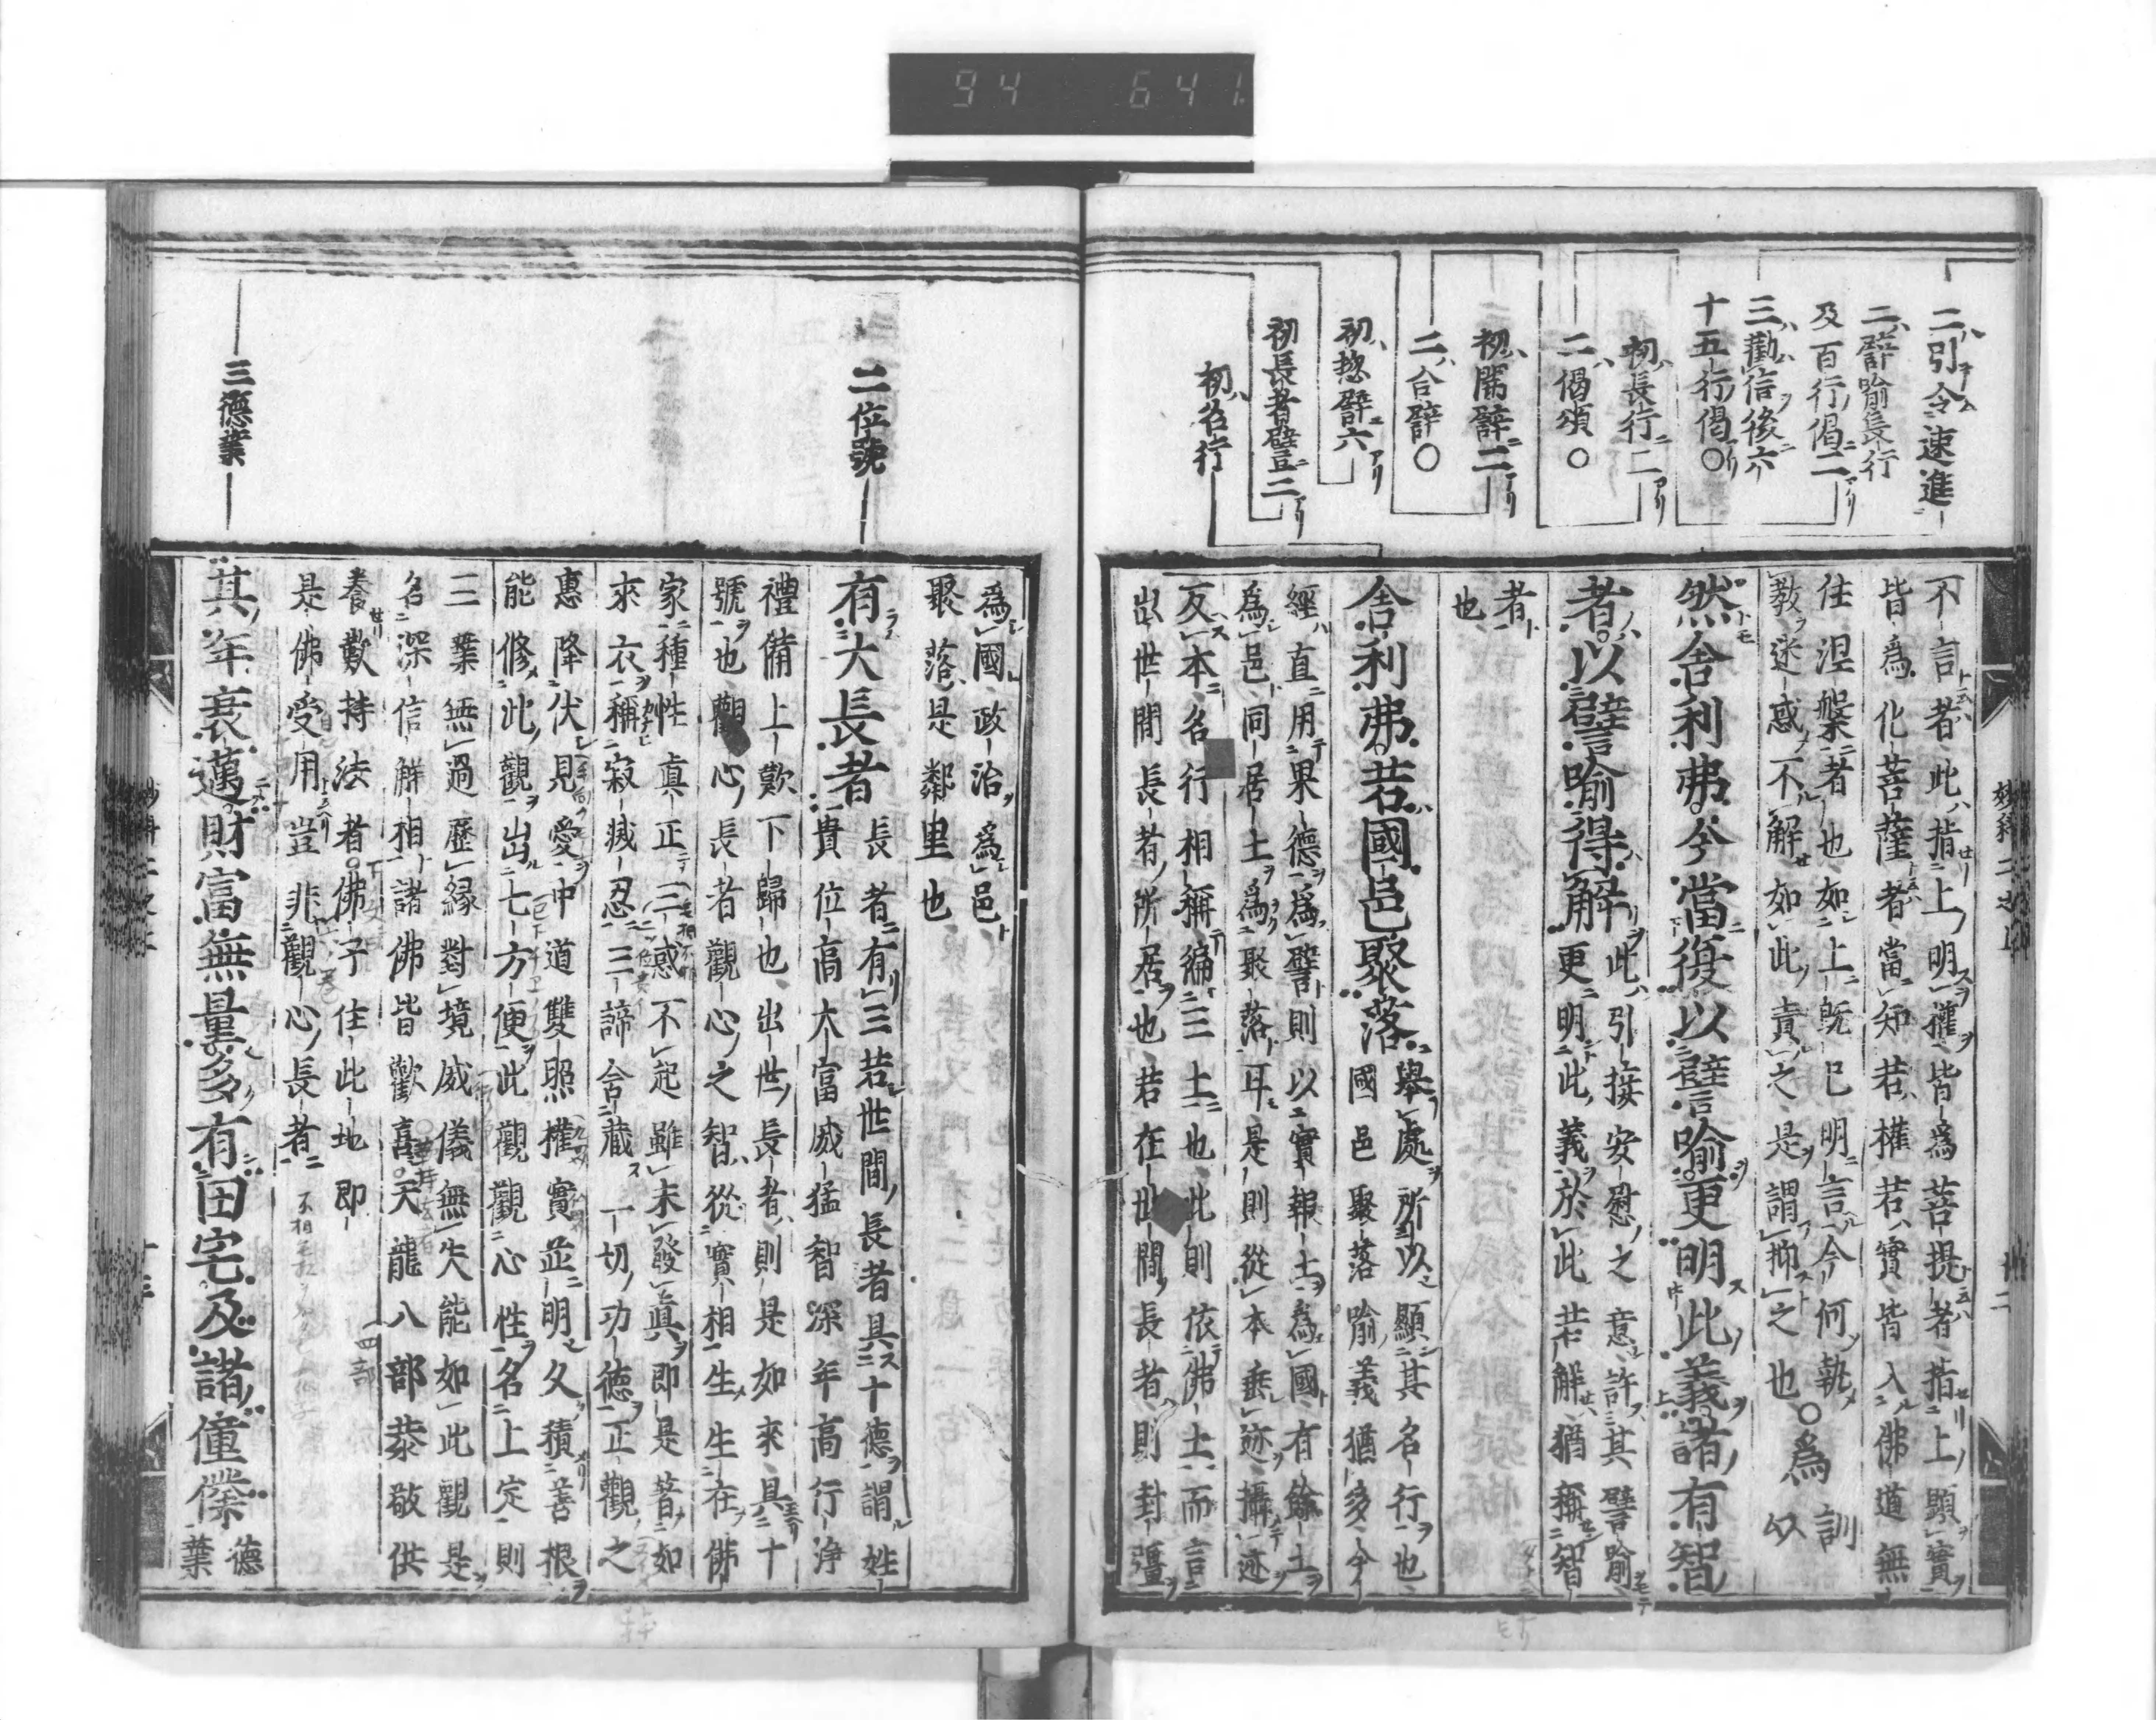 94 641
二引令速進
二譬喻長行
及百行偈二
三勸信後六
十五行偈〇
初長行二
二偈頌〇
初開譬二
二合譬〇
初揔譬六
初長者譬三
初名行
不言者此指上明權皆爲菩提者指上顯實
皆爲化菩薩者當知若權若實皆入佛道無
住涅槃者也如上旣已明言今何執
教迷惑不解如此責之是謂抑之也〇爲訓以
然舍利弗今當復以譬喻更明此義諸有智
者以譬喻得解
此引接安慰之意許其譬喻
更明此義於此若解猶稱智
者
也
舍利弗若國邑聚落
舉處所以顯其名行也
國邑聚落喻義猶多今
經直用果德爲譬則以實報土爲國有餘土
爲邑同居土爲聚落耳是則從本垂迹攝迹
反本名行相稱徧三土也此則依佛土而言
出世間長者所居也若在世間長者則封疆
爲國政治爲邑
聚落是鄰里也
二位號
有大長者
長者有三若世間長者具十德謂姓
貴位高大富威猛智深年高行淨
禮備上歎下歸也出世長者則是如來具十
號也觀心長者觀心之智從實相生生在佛
家種性眞正三惑不起雖未發眞即是著如
來衣稱寂滅忍三諦含藏一切功德正觀之
惠降伏見愛中道雙照權實並明久積善根
能修此觀出七方便此觀觀心性名上定則
三業無過歷緣對境威儀無失能如此觀是
名深信解相諸佛皆歡喜天龍八部恭敬供
養歎持法者佛子住此地即
是佛受用豈非觀心長者
三德業
其年衰邁財富無量多有田宅及諸僮僕
德
業